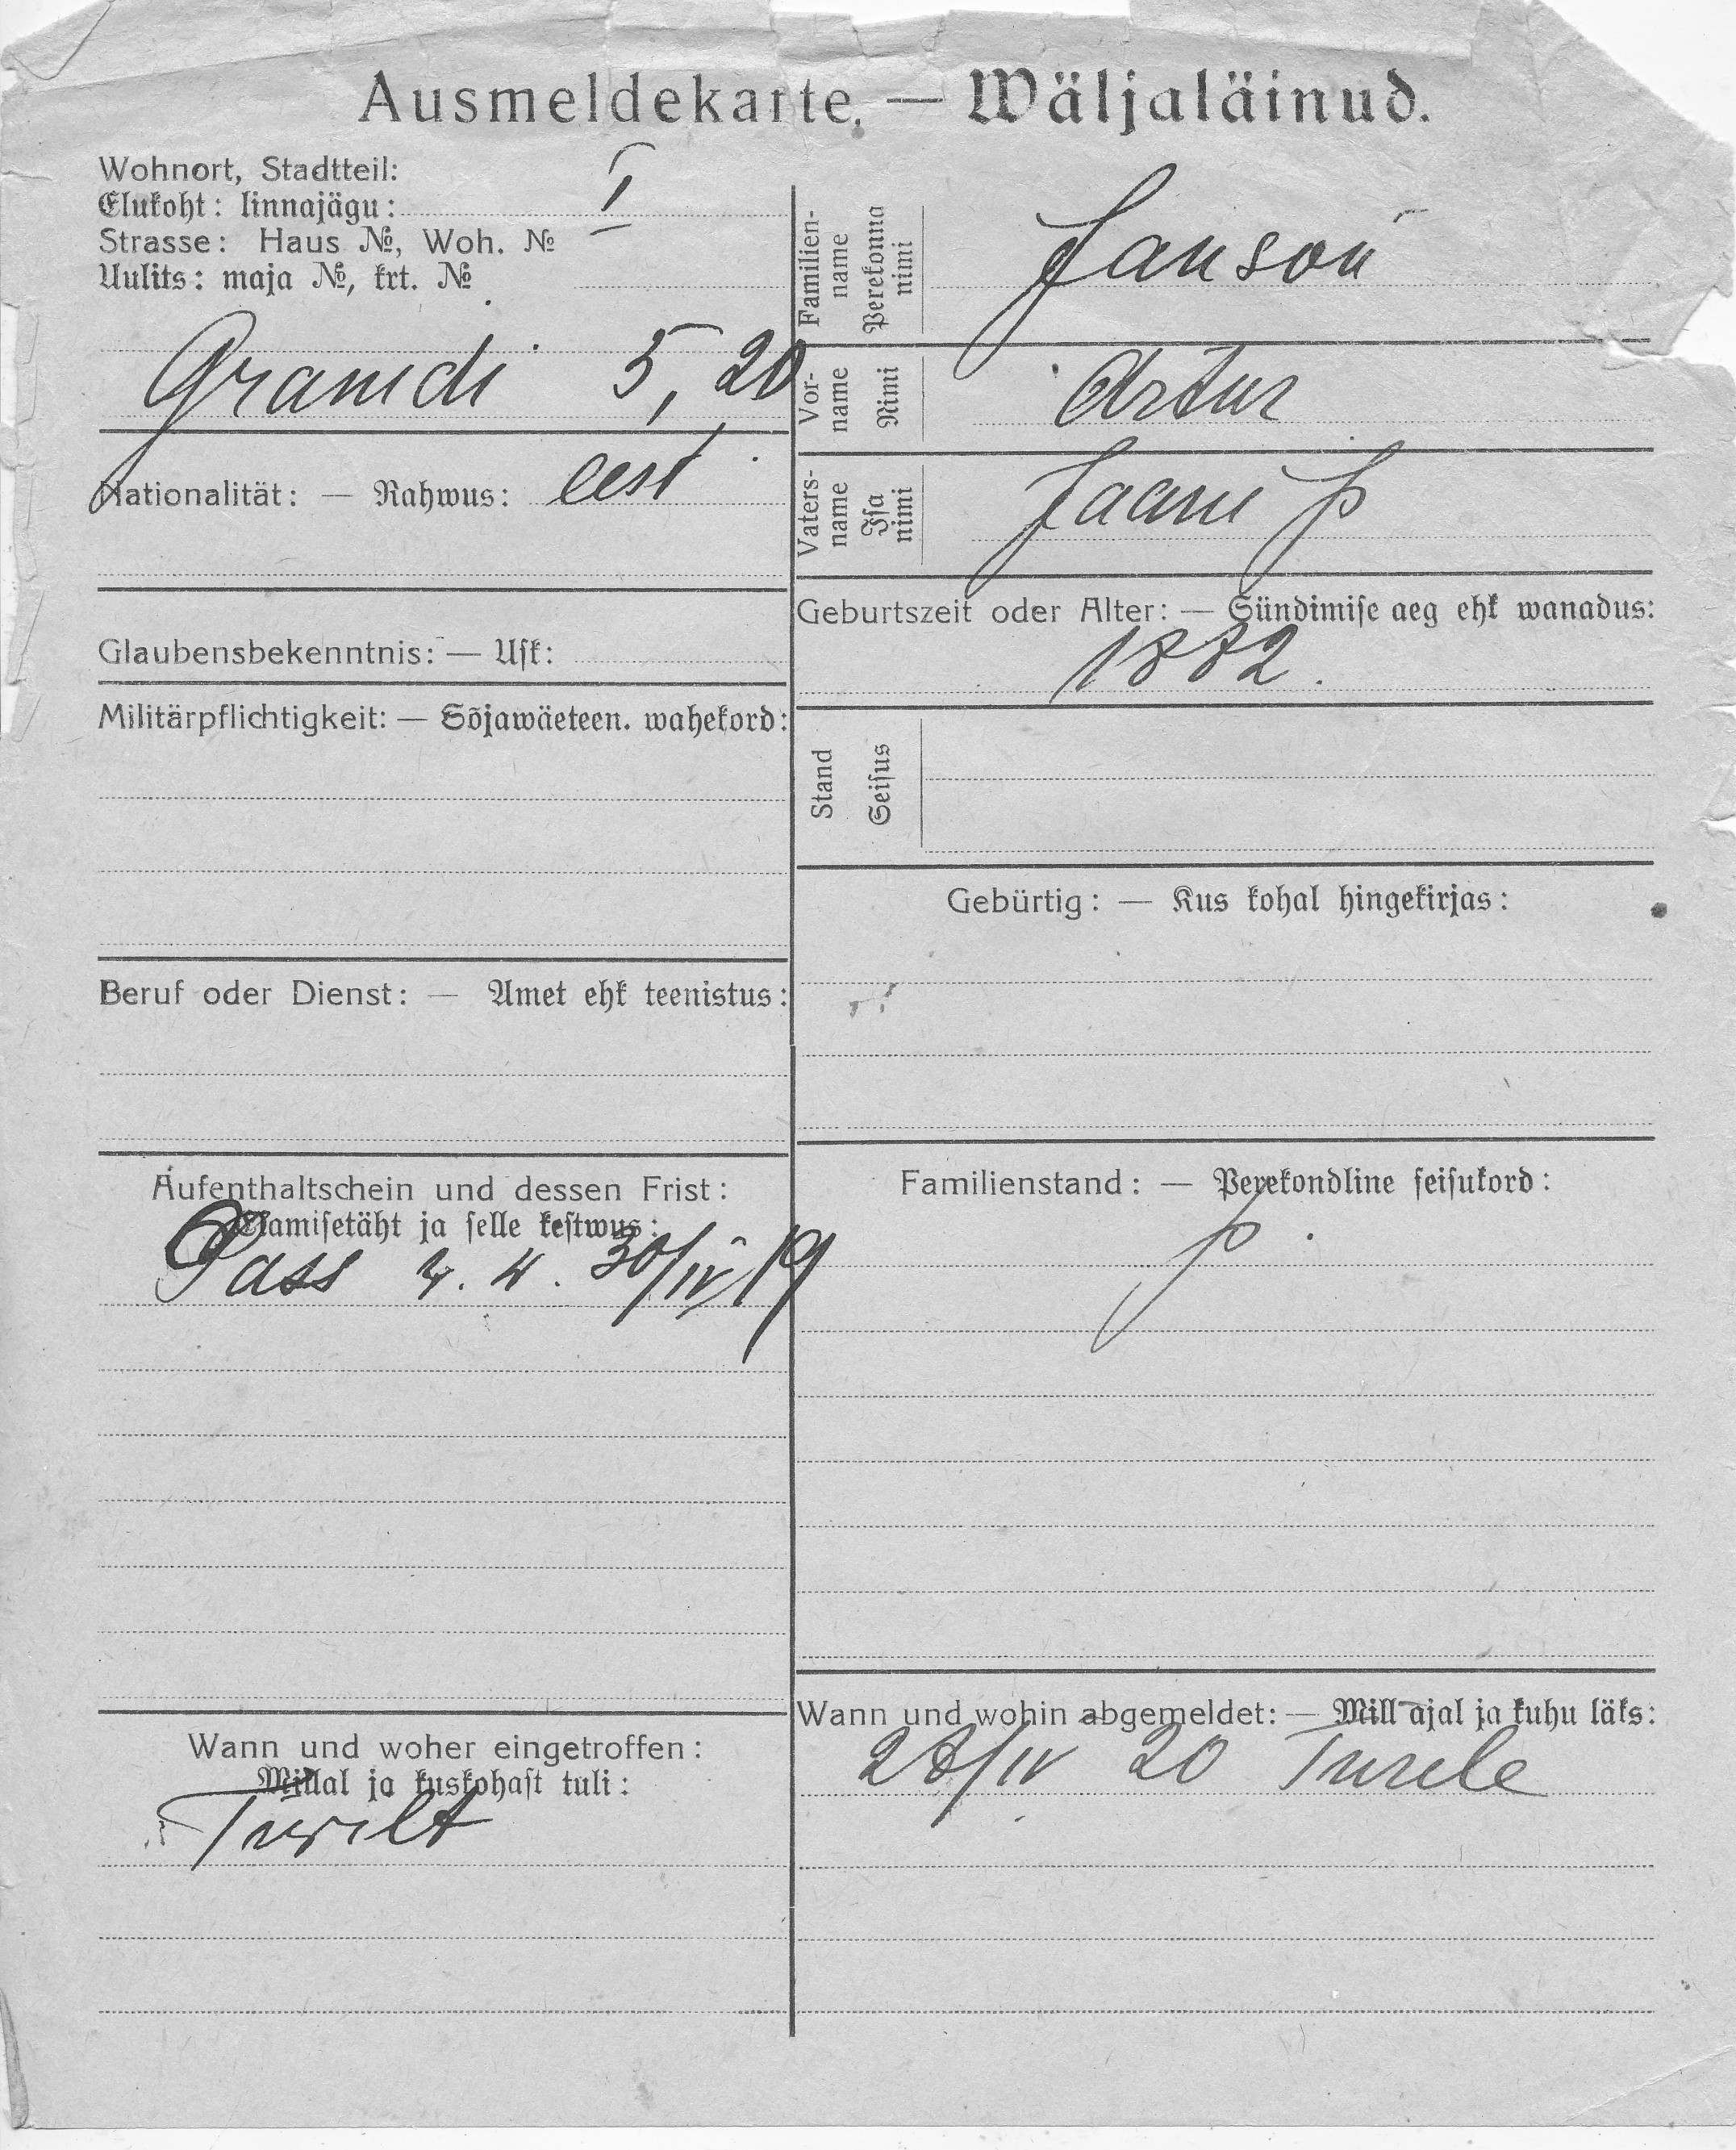 Ausmeldekarte. — Wäljaläinud.
Wohnort, Stadtteil:
Elukoht: linnajägu: I
Strasse: Haus №, Woh. №
Uulits: maja №, krt. №
Graniidi 5, 20
Nationalität: — Rahwus: eest
Glaubensbekenntnis: — Usk:
Militärpflichtigkeit: — Sõjawäeteen. wahekord:
Beruf oder Dienst: — Amet ehk teenistus:
Aufenthaltschein und dessen Frist:
Elamisetäht ja selle kestwus:
Pass 30/IV 19
Wann und woher eingetroffen:
Millal ja kuskohast tuli:
Türilt
Familien-
name
Perekonna
nimi
Janson
Vor-
name
Nimi
Artur
Vaters-
name
Isa
nimi
Jaani p
Geburtszeit oder Alter: — Sündimise aeg ehk wanadus:
1882.
Stand
Seisus
Gebürtig: — Kus kohal hingekirjas:
Familienstand: — Perekondline seisukord:
p.
Wann und wohin abgemeldet: — Mill ajal ja kuhu läks:
28/IV 20 Türile